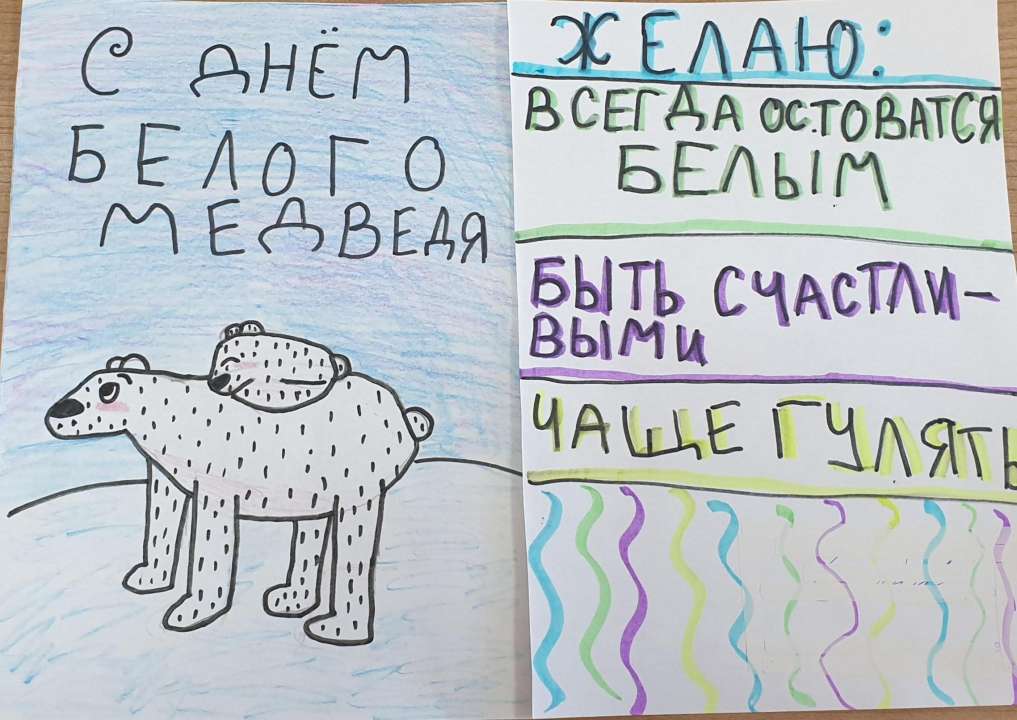 С ДНЁМ
БЕЛОГО
МЕДВЕДЯ
ЖЕЛАЮ:
ВСЕГДА ОСТОВАТСЯ
БЕЛЫМ
БЫТЬ СЧАСТЛИ-
ВЫМИ
ЧАЩЕ ГУЛЯТЬ